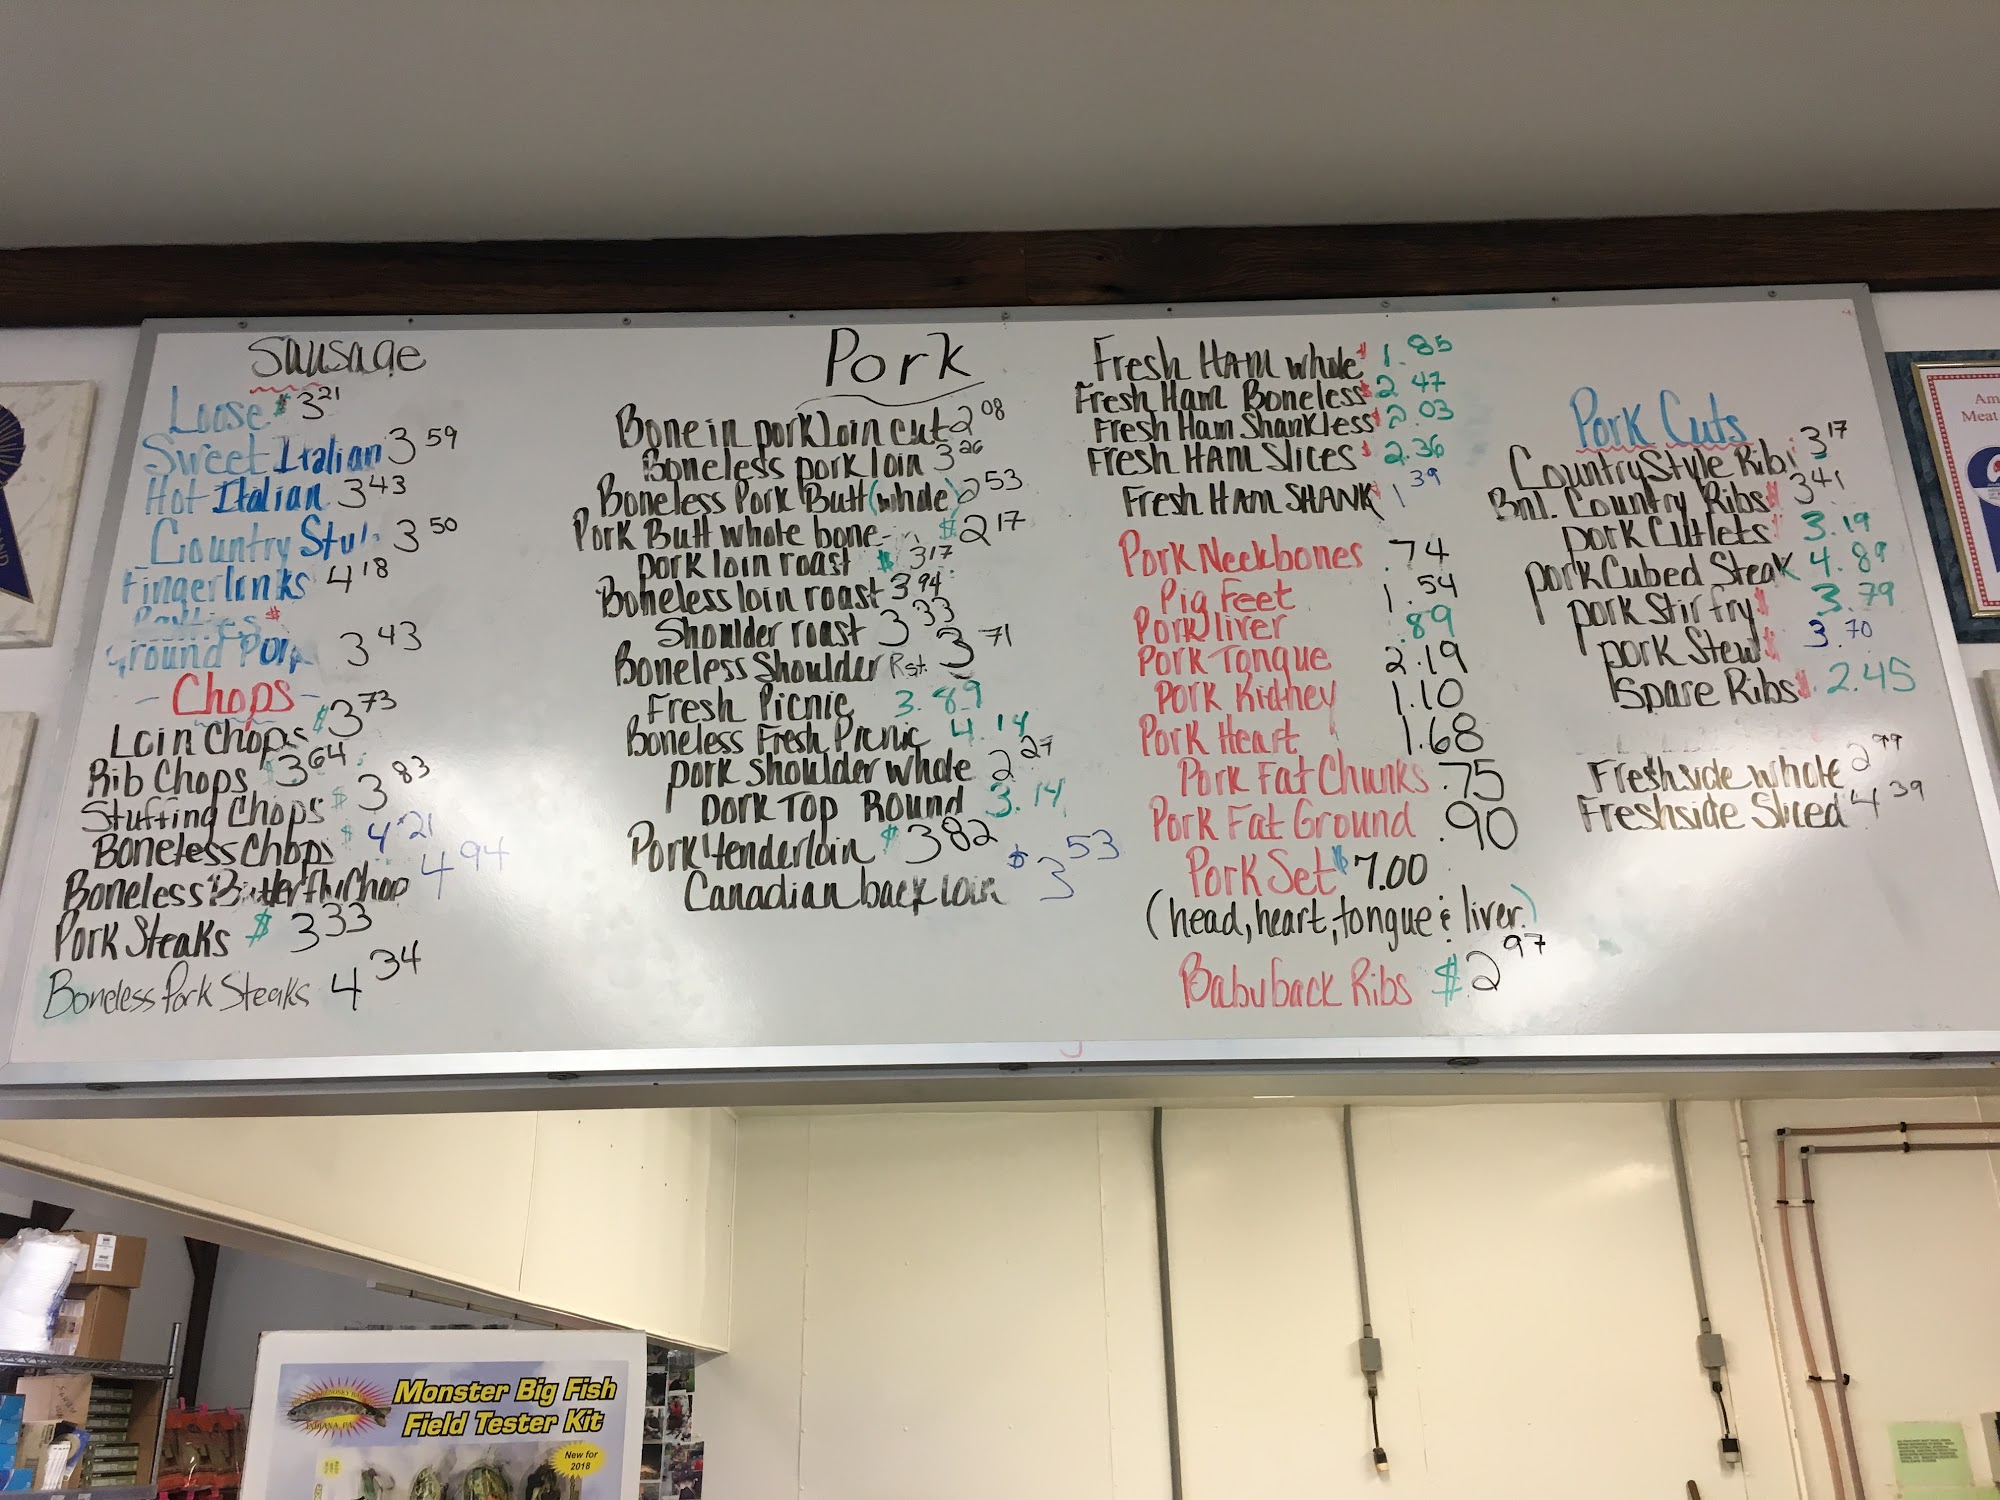 Sausage
Loose $ 3.21
Sweet Italian 3.59
Hot Italian 3.43
Country 3.50
Fingerlinks 4.18
Patties $
Ground Pork 3.43
- Chops -
Loin Chops $ 3.73
Rib Chops 3.64
Stuffing Chops $ 3.83
Boneless Chops $ 4.21
Boneless Butterfly Chop 4.94
Pork Steaks $ 3.33
Boneless Pork Steaks 4.34
Pork
Bone in pork loin cut 2.08
Boneless pork loin 3.26
Boneless Pork Butt (whole) 2.53
Pork Butt whole bone-in $ 2.17
pork loin roast $ 3.17
Boneless loin roast 3.94
Shoulder roast 3.33
Boneless Shoulder Rst. 3.71
Fresh Picnic 3.89
Boneless Fresh Picnic 4.14
pork shoulder whole 2.27
Pork Top Round 3.14
Pork tenderloin $ 3.82
Canadian back loin $ 3.53
Fresh HAM whole $ 1.85
Fresh Ham Boneless $ 2.47
Fresh Ham Shankless $ 2.03
Fresh HAM Slices $ 2.36
Fresh HAM SHANK $ 1.39
Pork Neckbones .74
Pig Feet 1.54
Pork liver .89
Pork Tongue 2.19
Pork Kidney 1.10
Pork Heart 1.68
Pork Fat Chunks .75
Pork Fat Ground .90
Pork Set $ 7.00
(head, heart, tongue & liver.)
Babyback Ribs $ 2.97
Pork Cuts
Country Style Ribs 3.17
Bnl. Country Ribs $ 3.41
pork Cutlets $ 3.19
pork Cubed Steak 4.89
pork Stir fry $ 3.79
pork Stew $ 3.70
Spare Ribs $ 2.45
Freshside whole 2.99
Freshside Sliced 4.39
Am
Meat
Monster Big Fish
Field Tester Kit
INDIANA, PA
New for
2018